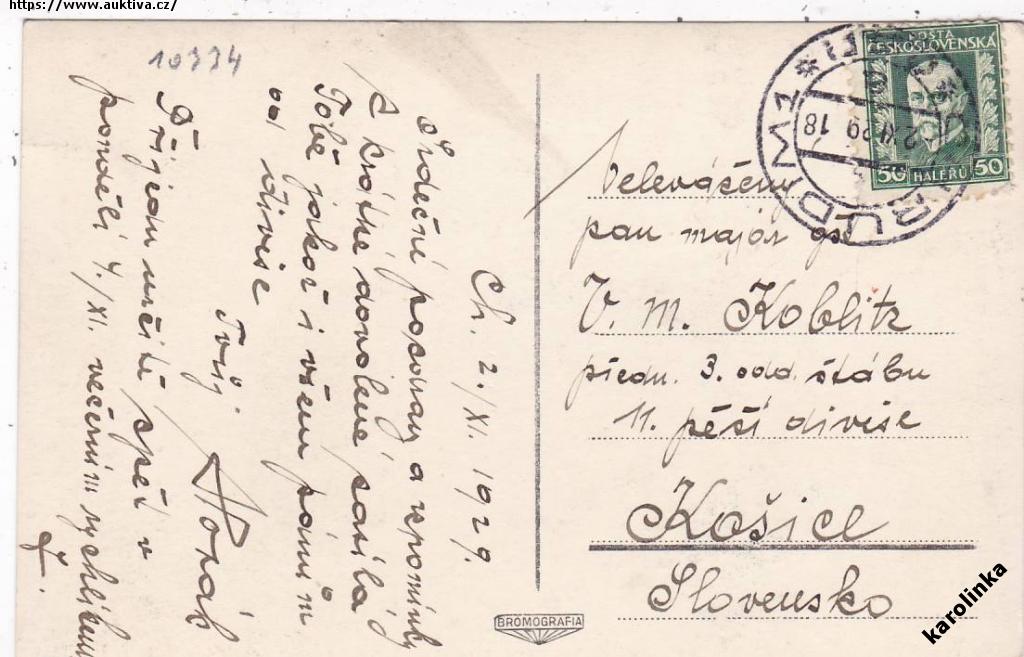 https://www.auktiva.cz/
10334
Ch. 2./XI. 1929.
Srdečné pozdravy a vzpomínky
z krátké dovolené zasílá
Tobě jakož i všem pánům
od divise
Tvůj
Novák
Přijedu určitě zpět v
pondělí 4./XI. večerním rychlíkem
POŠTA
ČESKOSLOVENSKÁ
50 HALÉŘŮ 50
CHRUDIM 1
2.XI.29 18
Velevážený
pan major gšt
V. M. Koblitz
předn. 3. odd. štábu
11. pěší divise
Košice
Slovensko
BROMOGRAFIA
karolinka